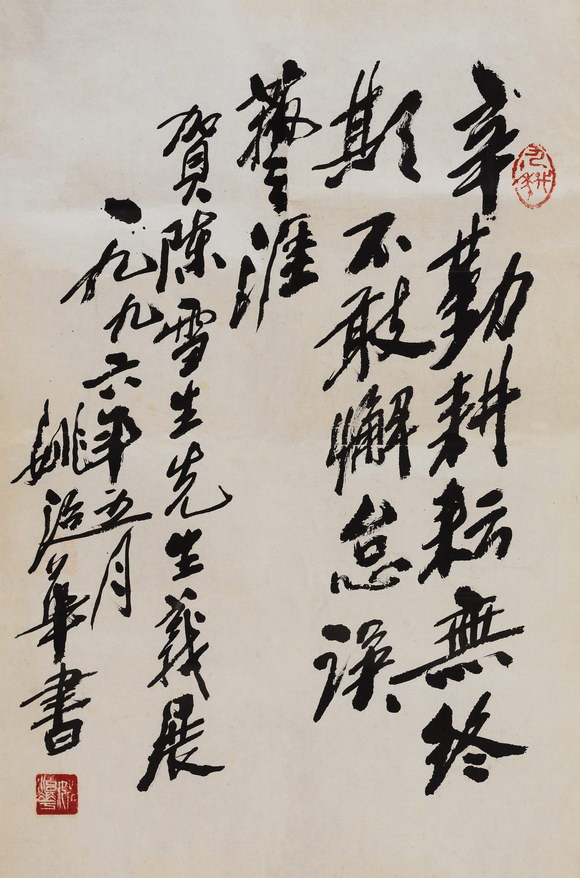 辛勤耕耘無終
斯不敢懈怠誤
藝涯
賀陳雪生先生義展
一九九六年五月
姚治華書